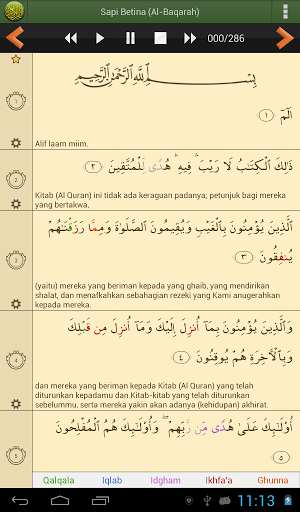 Sapi Betina (Al-Baqarah)
000/286
بِسْمِ ٱللَّهِ ٱلرَّحْمَٰنِ ٱلرَّحِيمِ
الٓمٓ ١
1
Alif laam miim.
ذَٰلِكَ ٱلْكِتَٰبُ لَا رَيْبَ ۛ فِيهِ ۛ هُدًى لِّلْمُتَّقِينَ ٢
2
Kitab (Al Quran) ini tidak ada keraguan padanya; petunjuk bagi mereka
yang bertakwa.
ٱلَّذِينَ يُؤْمِنُونَ بِٱلْغَيْبِ وَيُقِيمُونَ ٱلصَّلَوٰةَ وَمِمَّا رَزَقْنَٰهُمْ
يُنفِقُونَ ٣
3
(yaitu) mereka yang beriman kepada yang ghaib, yang mendirikan
shalat, dan menafkahkan sebahagian rezeki yang Kami anugerahkan
kepada mereka.
وَٱلَّذِينَ يُؤْمِنُونَ بِمَآ أُنزِلَ إِلَيْكَ وَمَآ أُنزِلَ مِن قَبْلِكَ
وَبِٱلْءَاخِرَةِ هُمْ يُوقِنُونَ ٤
4
dan mereka yang beriman kepada Kitab (Al Quran) yang telah
diturunkan kepadamu dan Kitab-kitab yang telah diturunkan
sebelummu, serta mereka yakin akan adanya (kehidupan) akhirat.
أُو۟لَٰٓئِكَ عَلَىٰ هُدًى مِّن رَّبِّهِمْ ۖ وَأُو۟لَٰٓئِكَ هُمُ ٱلْمُفْلِحُونَ
٥
5
Qalqala Iqlab Idgham Ikhfa'a Ghunna
11:13